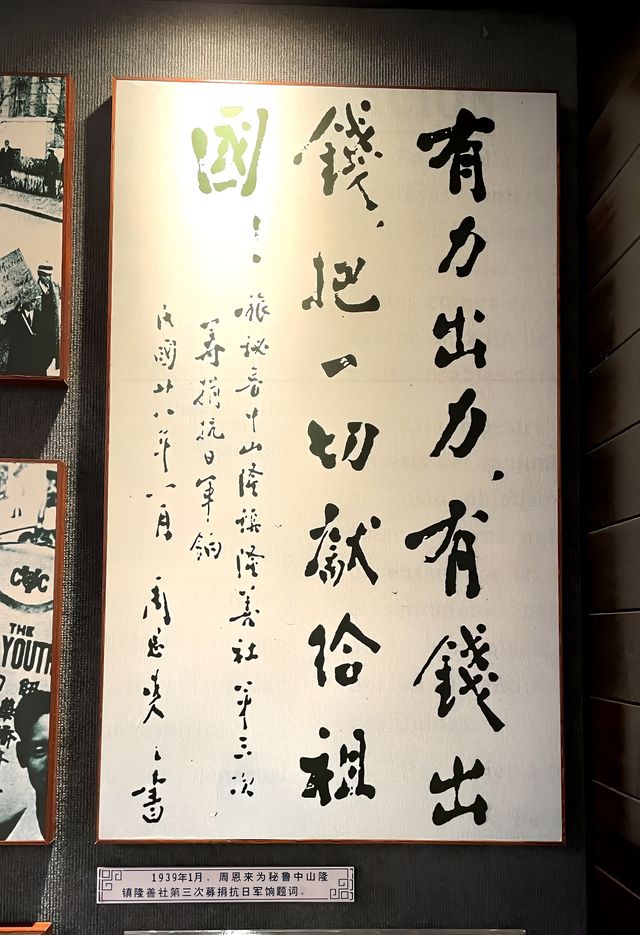 有力出力，有錢出
錢，把一切獻給祖
國！
旅秘魯中山隆鎮隆善社第三次
籌捐抗日軍餉
民國廿八年八月 周恩來之書
1939年1月，周恩来为秘鲁中山隆
镇隆善社第三次募捐抗日军饷题词。
THE
YOUTH